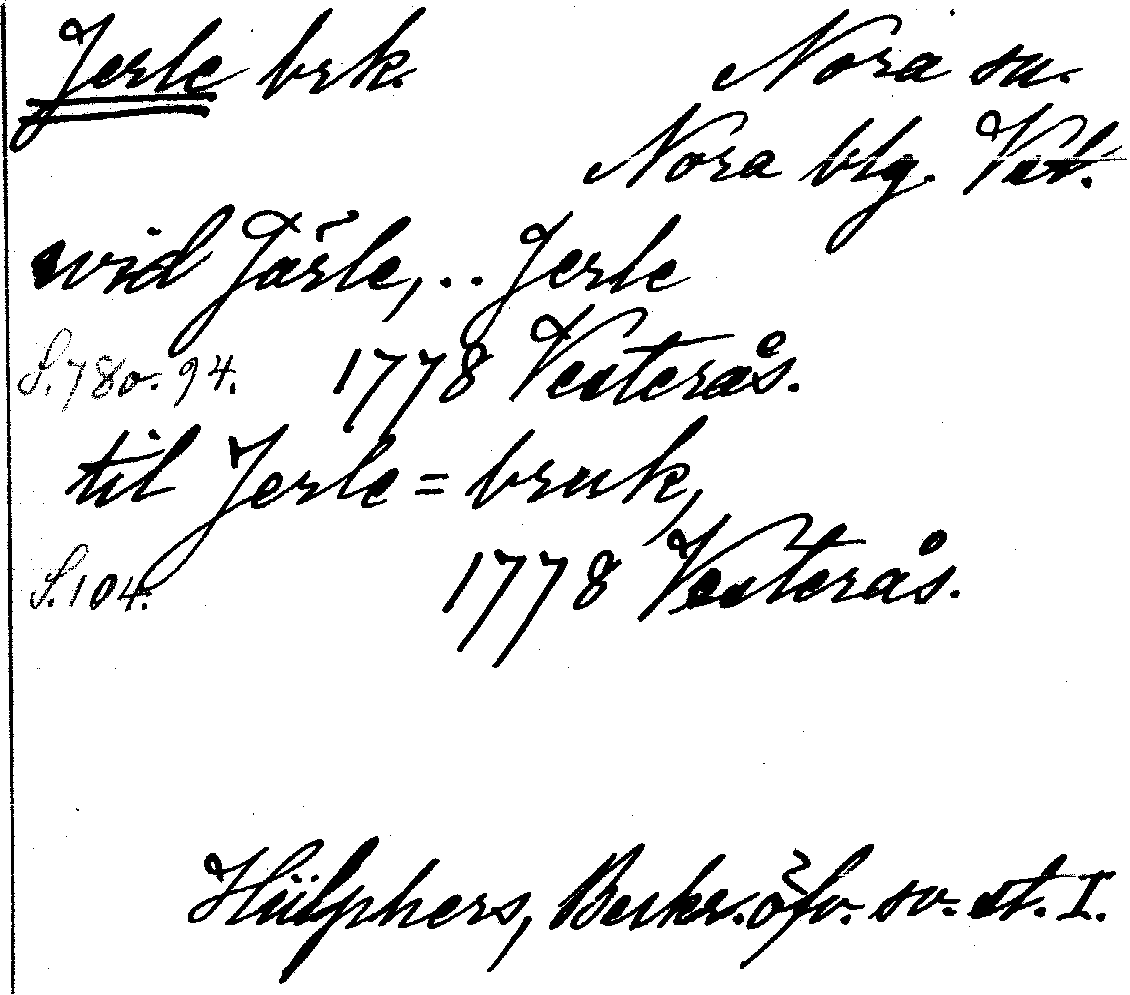 Jerle brk. Nora sn.
Nora blg. Vstl.
wid Järle, .. Jerle
S. 78 o. 94. 1778 Vesterås.
til Jerle=bruk,
S. 104. 1778 Vesterås.
Hülphers, Beskr. öfv. sv. st. I.